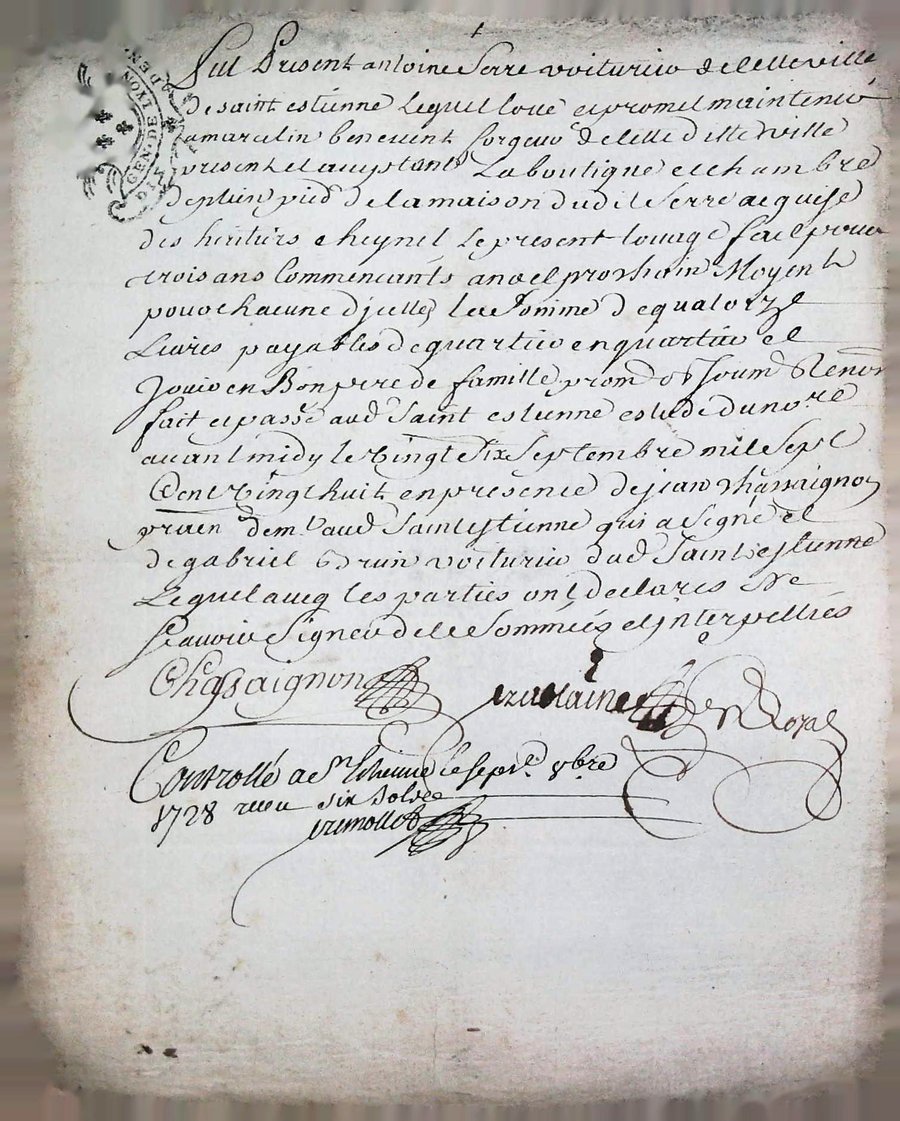 GEN. DE LYON
DEN
Fut Present antoine Serre voiturier de cette ville
de saint estienne Lequel loue et promet maintenir
a marcelin benevent forgeur de cette ditte ville
present et acceptant La boutique et chambre
de plain pied de la maison dudit Serre acquise
des heritiers cheynet Le present louage fait pour
trois ans Commencants a noel prochain Moyent
pour chacune d'jcelles la somme de quatorze
Livres payables de quartier en quartier et
Jouir en Bon pere de famille prom obl soum Renon
fait et passé aud Saint estienne estude du nore
avant midy le vingt six Septembre mil sept
Cent vingt huit en presence de jean Chassaignon
demt aud Saint Estienne qui a signé et
de gabriel voiturier dud Saint estienne
Lequel avecq les parties ont declarés Ne
scavoir Signer de ce Sommés et jnterpellés
Chassaignon
Nre Royal
Controllé a St Etienne le sept 8bre
1728 receu six sols